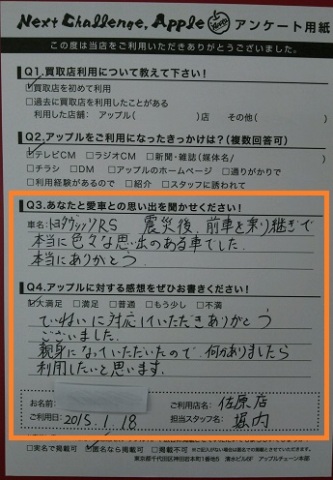 Next Challenge, Apple アンケート用紙
この度は当店をご利用いただきありがとうございました。
Q1.買取店利用について教えて下さい!
☑買取を初めて利用
□過去に買取を利用したことがある
利用した店舗: アップル( )店 その他( )
Q2.アップルをご利用になったきっかけは?(複数回答可)
☑テレビCM □ラジオCM □新聞・雑誌(媒体名/ )
□チラシ □DM □アップルのホームページ □通りがかりで
□利用経験があるので □紹介 □スタッフに誘われて
Q3.あなたと愛車との思い出を聞かせください!
車名: RS 震災後、前車を乗り継ぎで
本当に色々な思い出のある車でした。
本当にありがとう。
Q4.アップルに対する感想をぜひお書きください!
☑大満足 □満足 □普通 □もう少し □不満
ていねいに対応していただきありがとう
ございました。
親身になっていただいたので、何かありましたら
利用したいと思います。
お名前:
ご利用店名: 佐原店
ご利用日: 2015.1.18
担当スタッフ名: 堀内
□実名で掲載可 ☑匿名なら掲載可 □掲載不可
東京都千代田区神田岩本町1番地5 清水ビル6F アップルチェーン本部